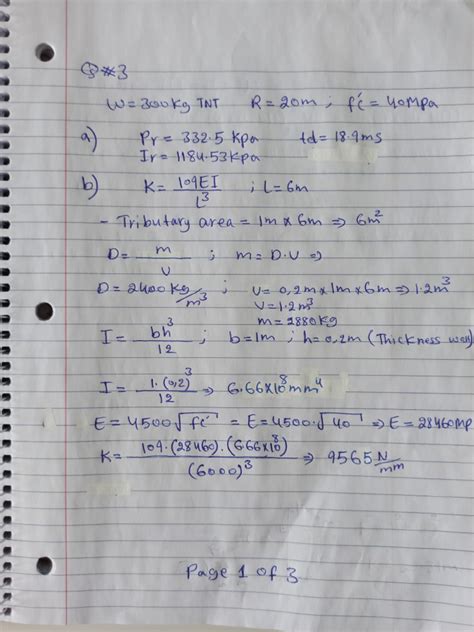 Q#3
W = 300kg TNT R = 20m ; f'c = 40Mpa
a) Pr = 332.5 kpa td = 18.9ms
Ir = 1184.53 kpa
b) K = 109EI / L³ ; L = 6m
- Tributary area = 1m x 6m ⇒ 6m²
D = m / v ; m = D.U ⇒
D = 2400 kg/m³ ; V = 0,2m x 1m x 6m ⇒ 1.2m³
V = 1.2m³
m = 2880kg
I = bh³ / 12 ; b = 1m ; h = 0,2m (Thickness wall)
I = 1.(0,2)³ / 12 ⇒ 6.66x10⁸ mm⁴
E = 4500√fc' = E = 4500.√40 ⇒ E = 28460Mp
K = 109.(28460).(6.66x10⁸) / (6000)³ ⇒ 9565 N/mm
Page 1 of 3